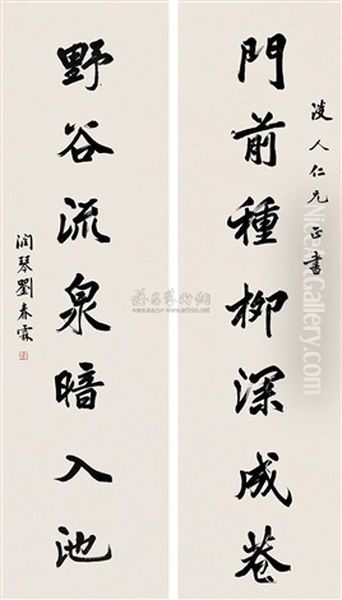 門前種柳深成巷
人仁兄正書
野谷流泉暗入池
潤琴劉春霖
www.artron.net
MutualArt.com